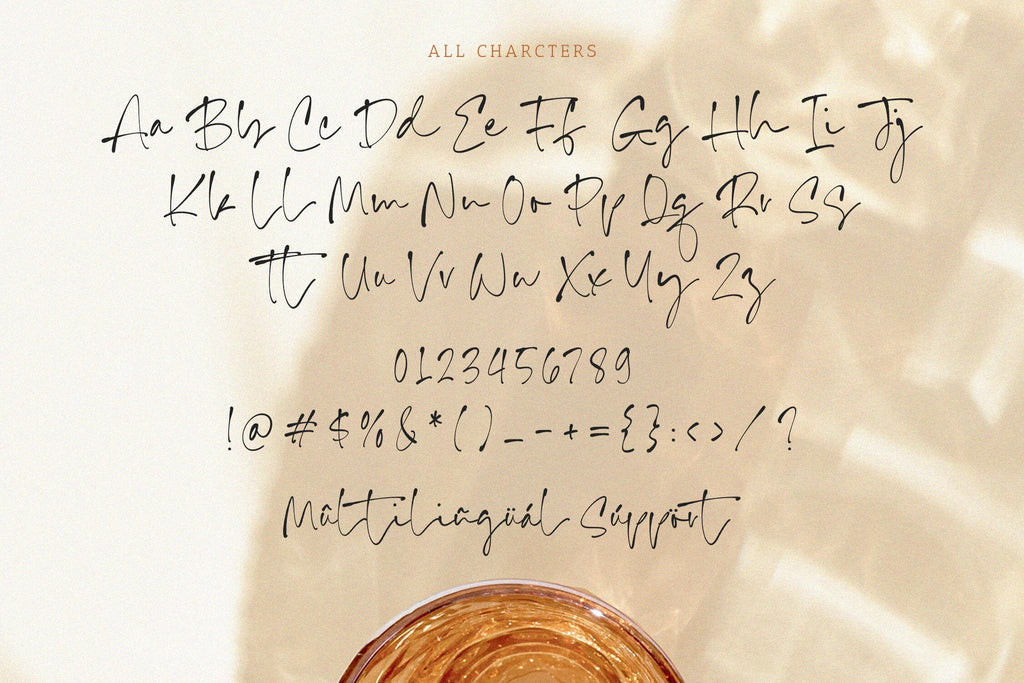 ALL CHARCTERS
Aa Bb Cc Dd Ee Ff Gg Hh Ii Jj
Kk Ll Mm Nn Oo Pp Qq Rr Ss
tt Uu Vv Ww Xx Yy Zz
0123456789
!@#$%&*()_-+={}:<>/?
Mûltiliñgüál Súppört